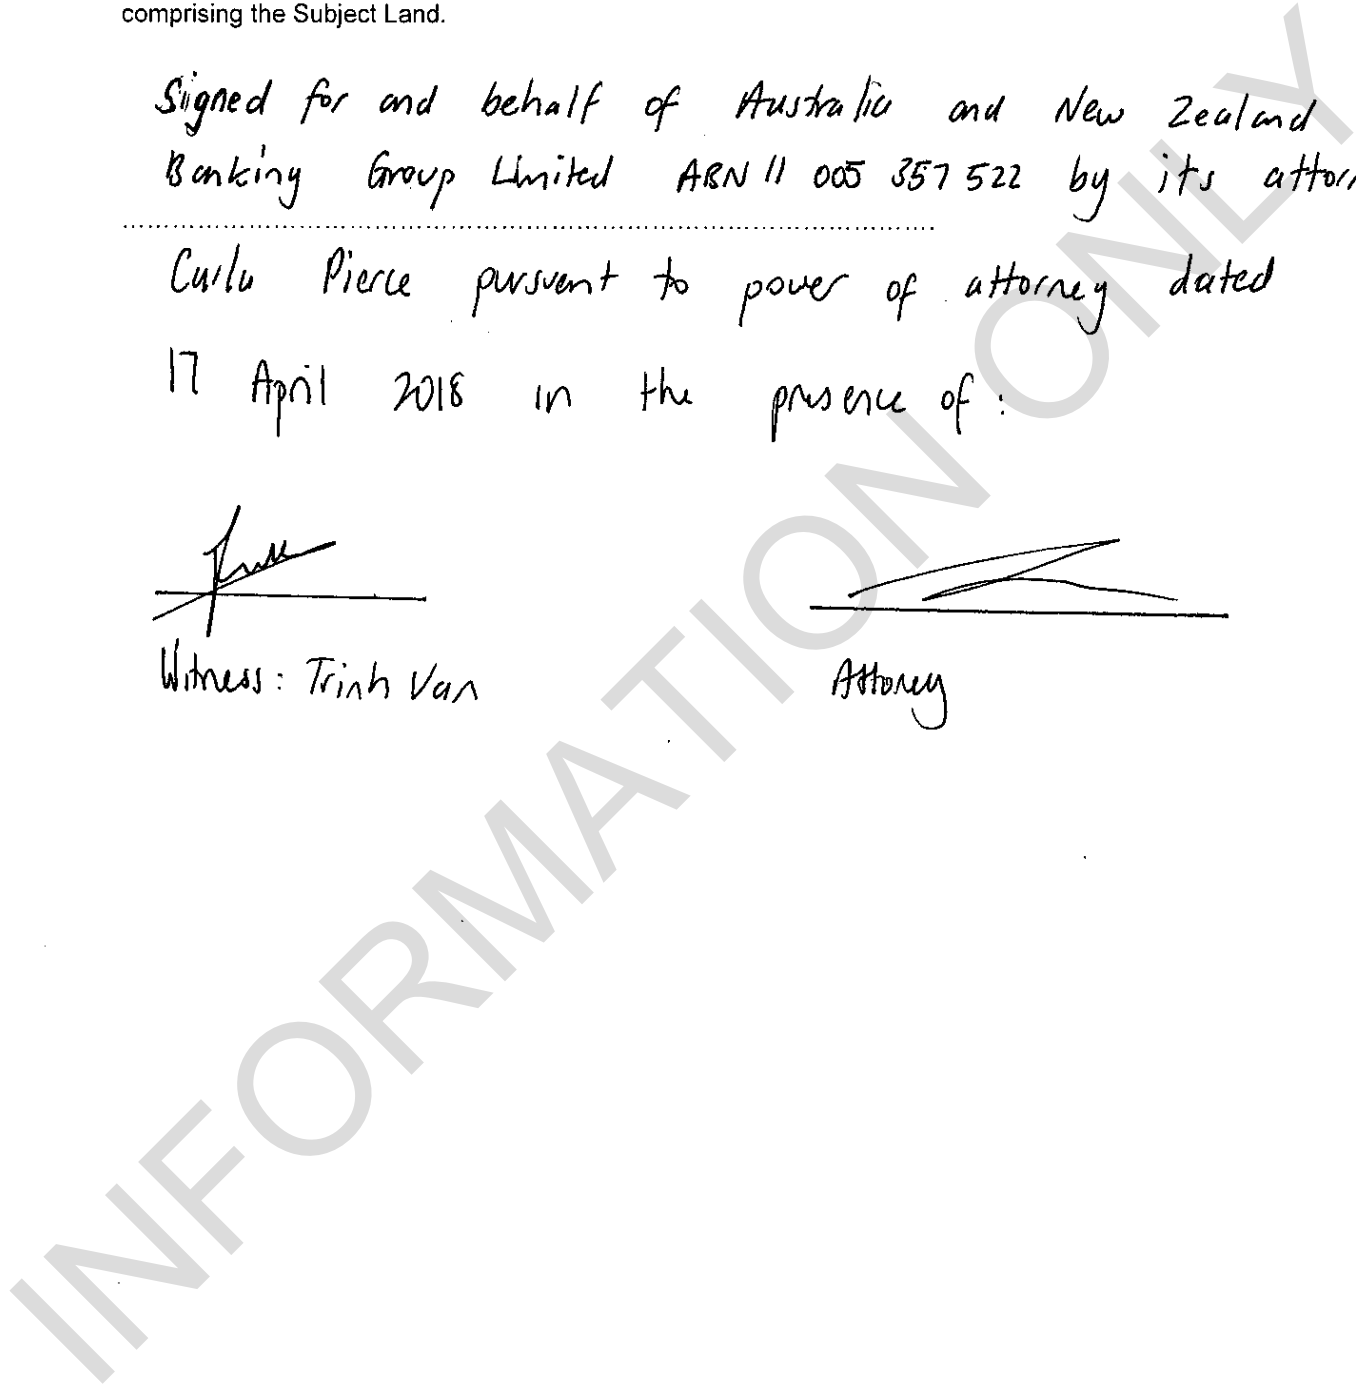 comprising the Subject Land.
Signed for and behalf of Australia and New Zealand
Banking Group Limited ABN 11 005 357 522 by its attorn
Carla Pierce pursuant to power of attorney dated
17 April 2018 in the presence of:
Witness: Trinh Van
Attorney
INFORMATION ONLY